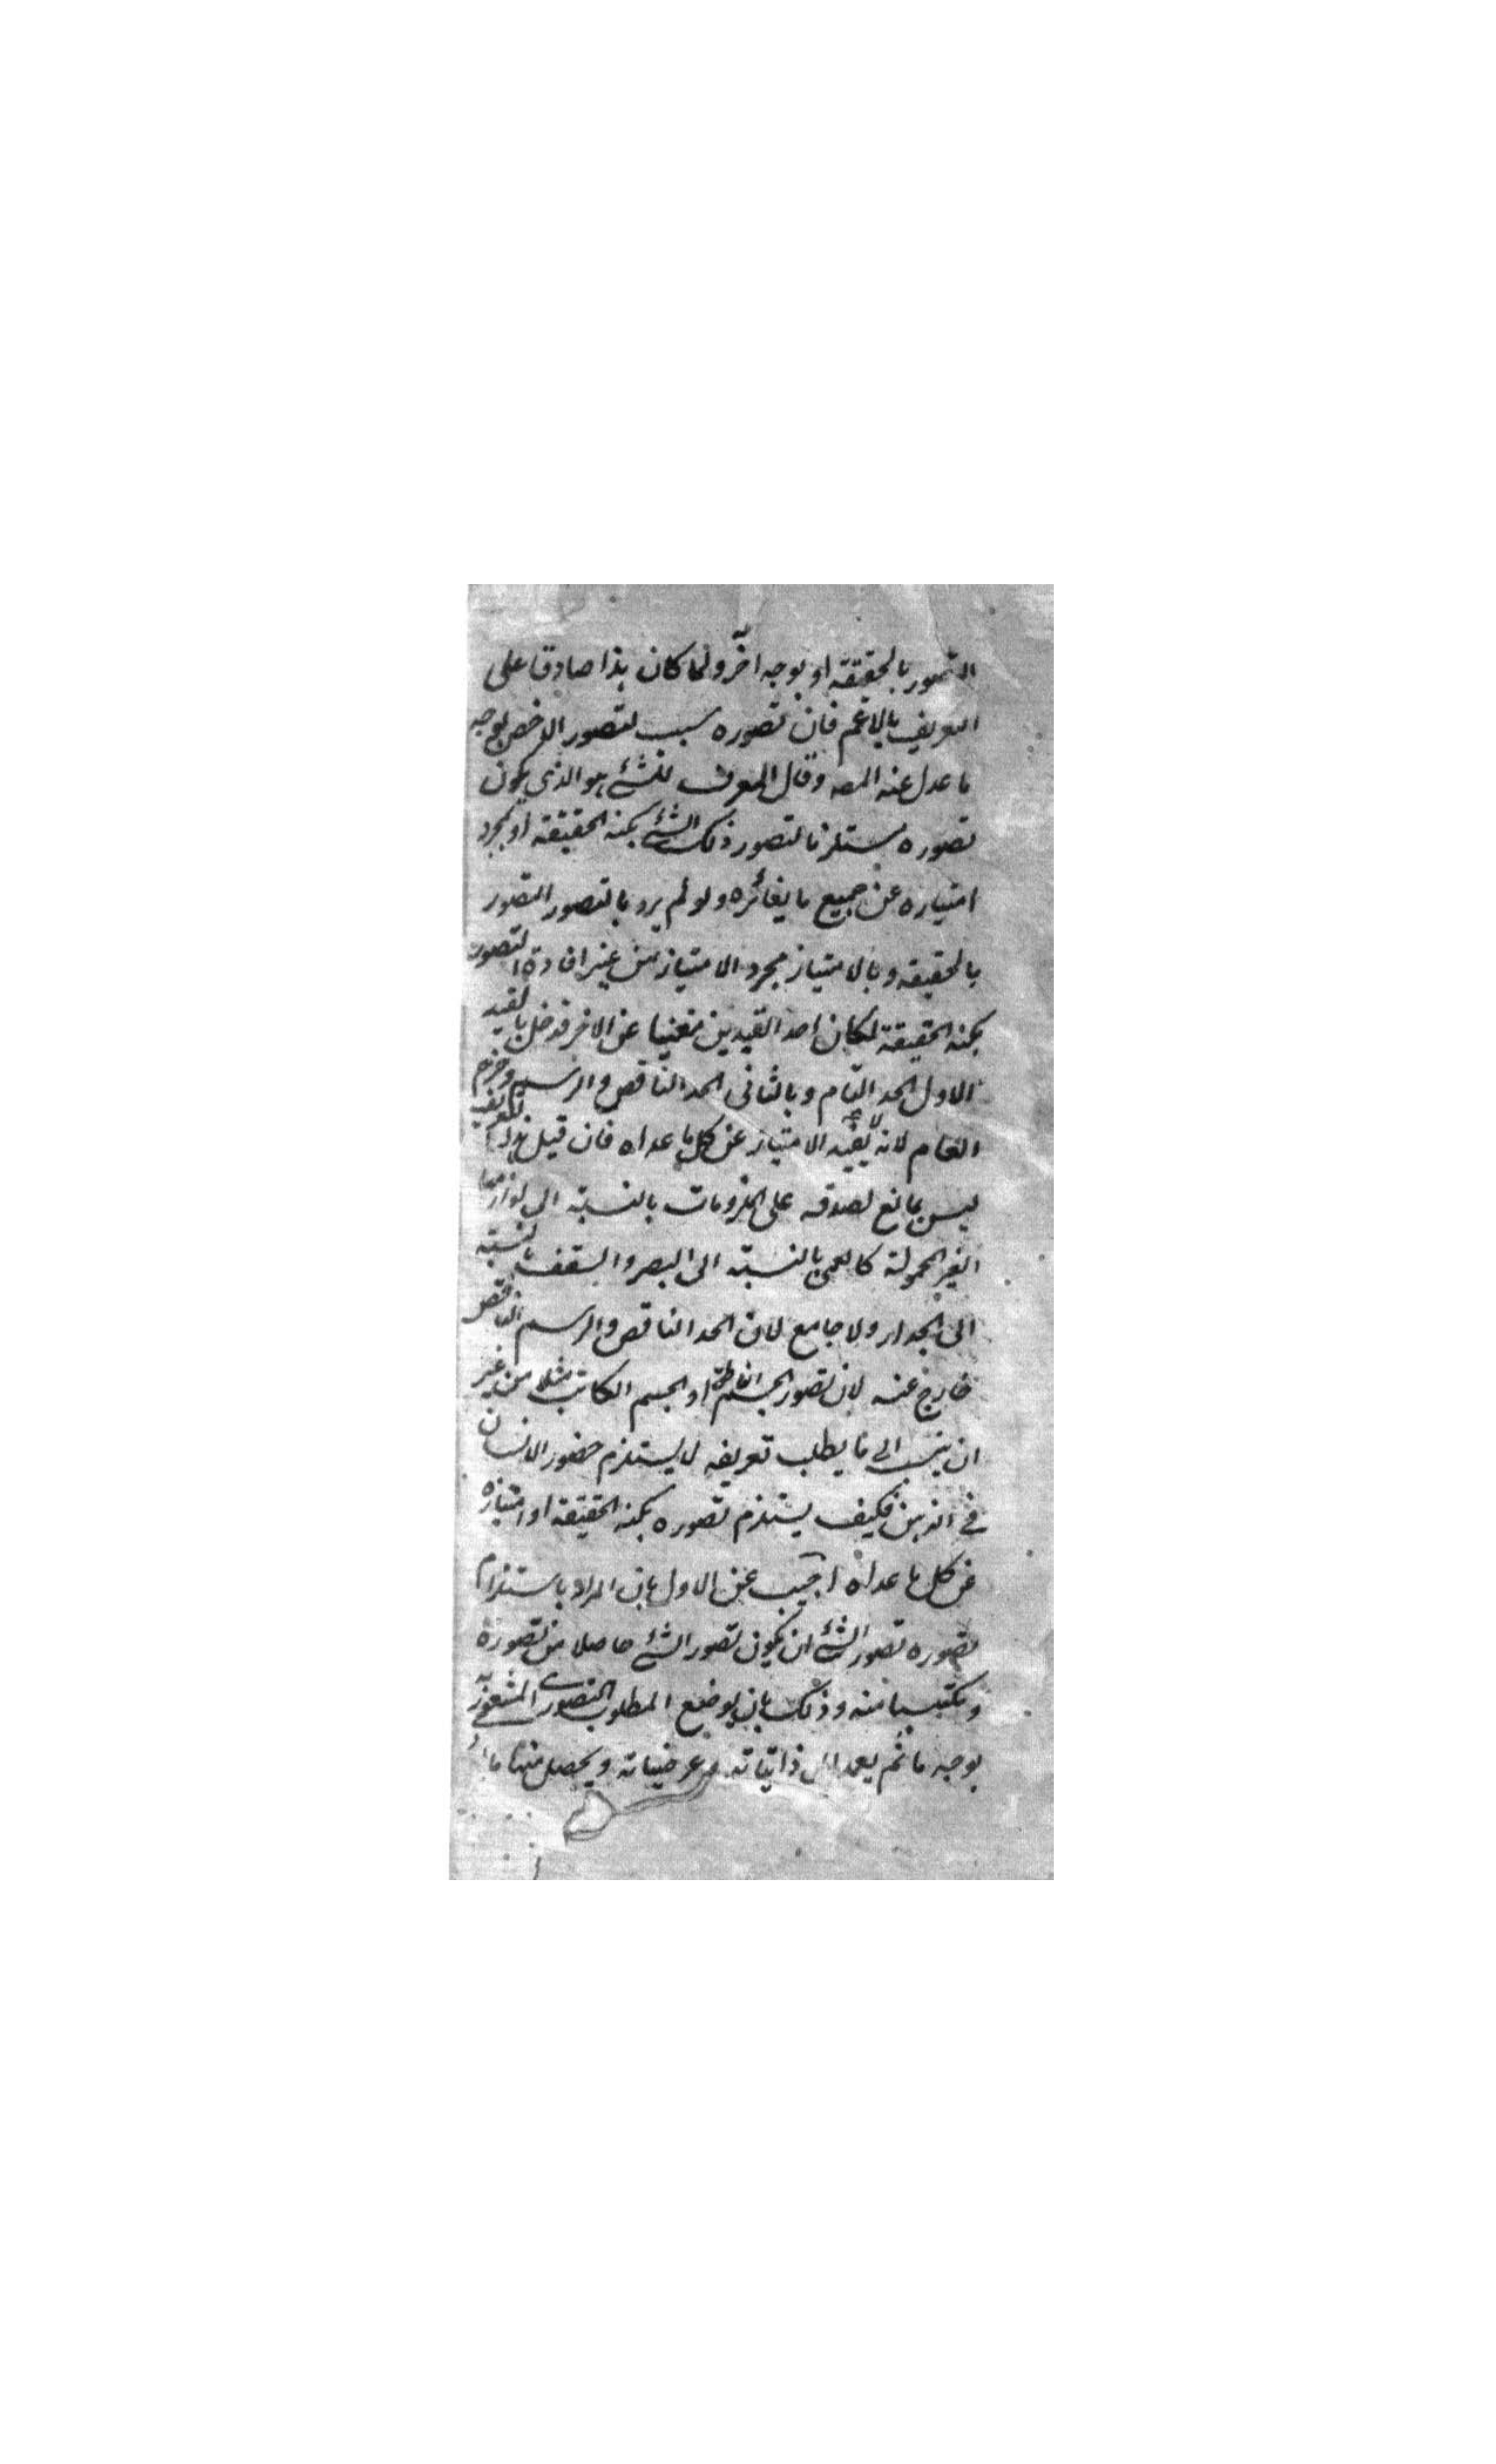 التصور بالحقيقة او بوجه اخر ولما كان هذا صادقا على
التعريف بالاعم فان تصوره سبب لتصور الاخص بوجه
ما عدل عنه المصه وقال المعرف للشئ هو الذي يكون
تصوره مستلزما لتصور ذلك الشئ بكنه الحقيقة او بمجرد
امتيازه عن جميع ما يغائره ولو لم يرد بالتصور التصور
بالحقيقه وبالامتياز مجرد الامتياز من غير افادة التصور
بكنه الحقيقة لكان احد القيدين مغنيا عن الاخر فدخل بالقيد
الاول الحد التام وبالثانى الحد الناقص والرسم وخرج
العام لانه لا يفيد الامتياز عن كل ما عداه فان قيل هذا التعريف
ليس بمانع لصدقه على الملزومات بالنسبة الى لوازمها
الغير المحمولة كالعمى بالنسبة الى البصر والسقف بالنسبة
الى الجدار ولا جامع لان الحد الناقص والرسم الناقص
خارج عنه لان تصور الجسم الناطق او الجسم الكاتب مثلا من غير
ان ينسب الى ما يطلب تعريفه لا يستلزم حضور الانسان
فى الذهن فكيف يستلزم تصوره بكنه الحقيقة او امتيازه
عن كل ما عداه اجيب عن الاول بان المراد باستلزام
تصوره تصور الشئ ان يكون تصور الشئ حاصلا من تصوره
ومكتسبا منه وذلك بان يوضع المطلوب التصورى المشعور به
بوجه ما ثم يعمد الى ذاتياته وعرضياته ويحصل منها ما